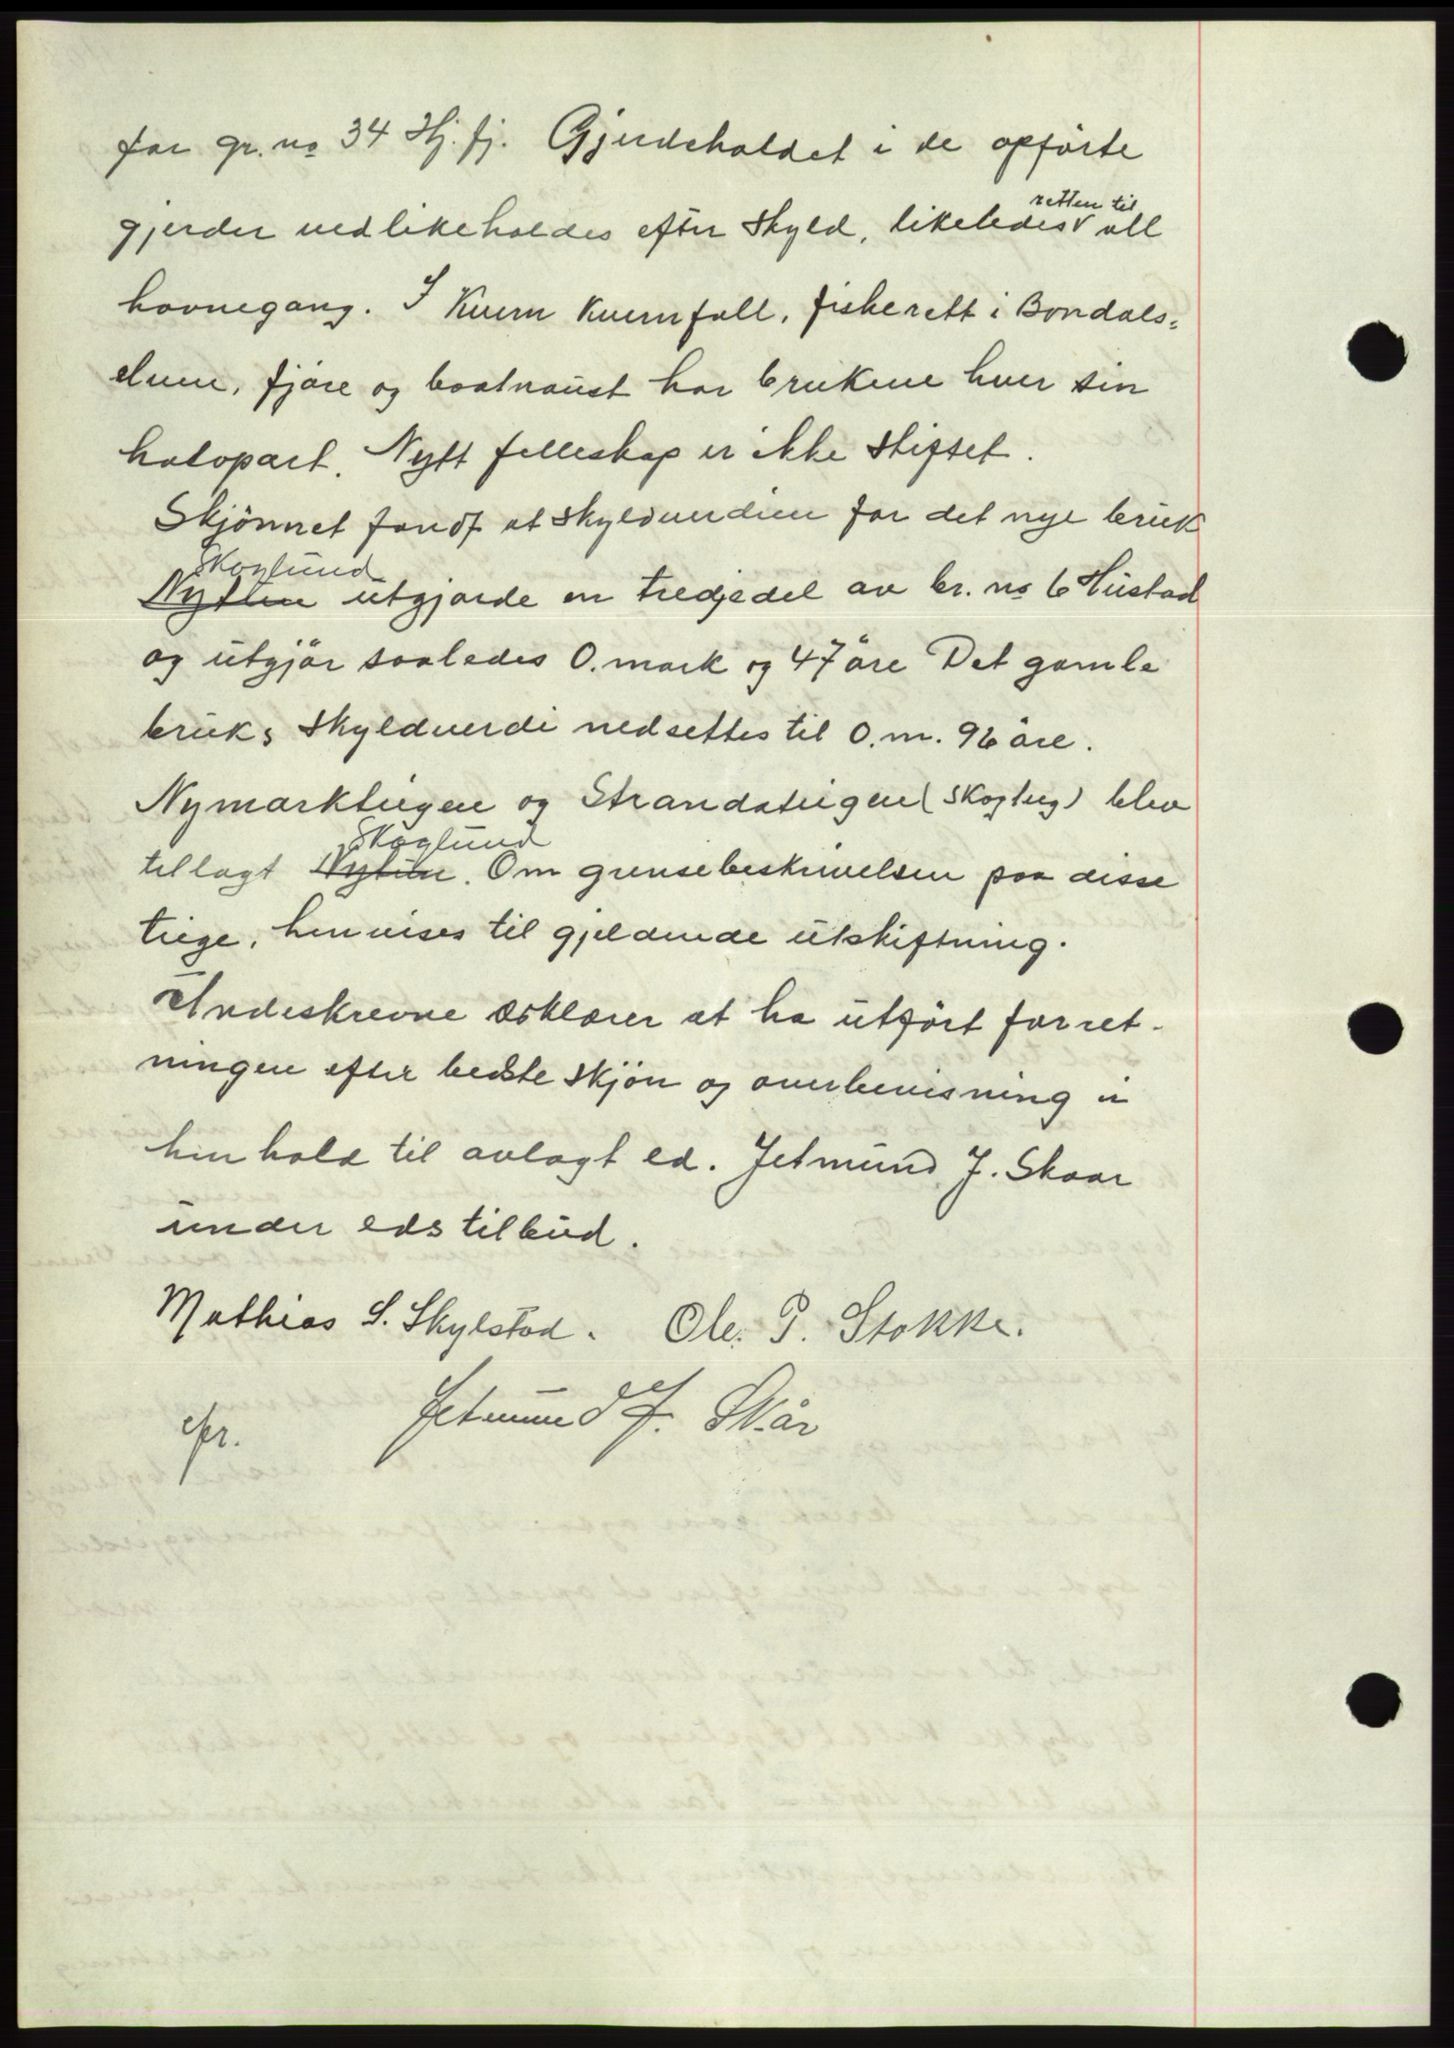 for gr. no 34 Hj. fj. Gjerdeholdet i de opförte
gjerder vedlikeholdes efter skyld, likeledes retten til all
havnegang. I Kvern Kvernfall, fiskerett i Bondals-
elven, fjöre og baatnaust har brukene hver sin
halvpart. Nytt felleskap er ikke stiftet.
Skjönnet fandt at skyldverdien for det nye bruk
Skoglund
Nytun utgjorde en tredjedel av br. no 6 Hustad
og utgjör saaledes 0. mark og 47 öre Det gamle
bruks skyldverdi nedsettes til 0. m. 96 öre.
Nymarkteigen og Strandateigen (skogteig) blev
Skoglund
tillagt Nytun. Om grensebeskrivelsen paa disse
teige, henvises til gjeldende utskiftning.
Undeskrevne erklærer at ha utfört forret-
ningen efter bedste skjön og overbevisning i
henhold til avlagt ed. Jetmund J. Skaar
under eds tilbud.
Mathias S. Skylstad. Ole. P. Stokke.
Jetmund J. Skår